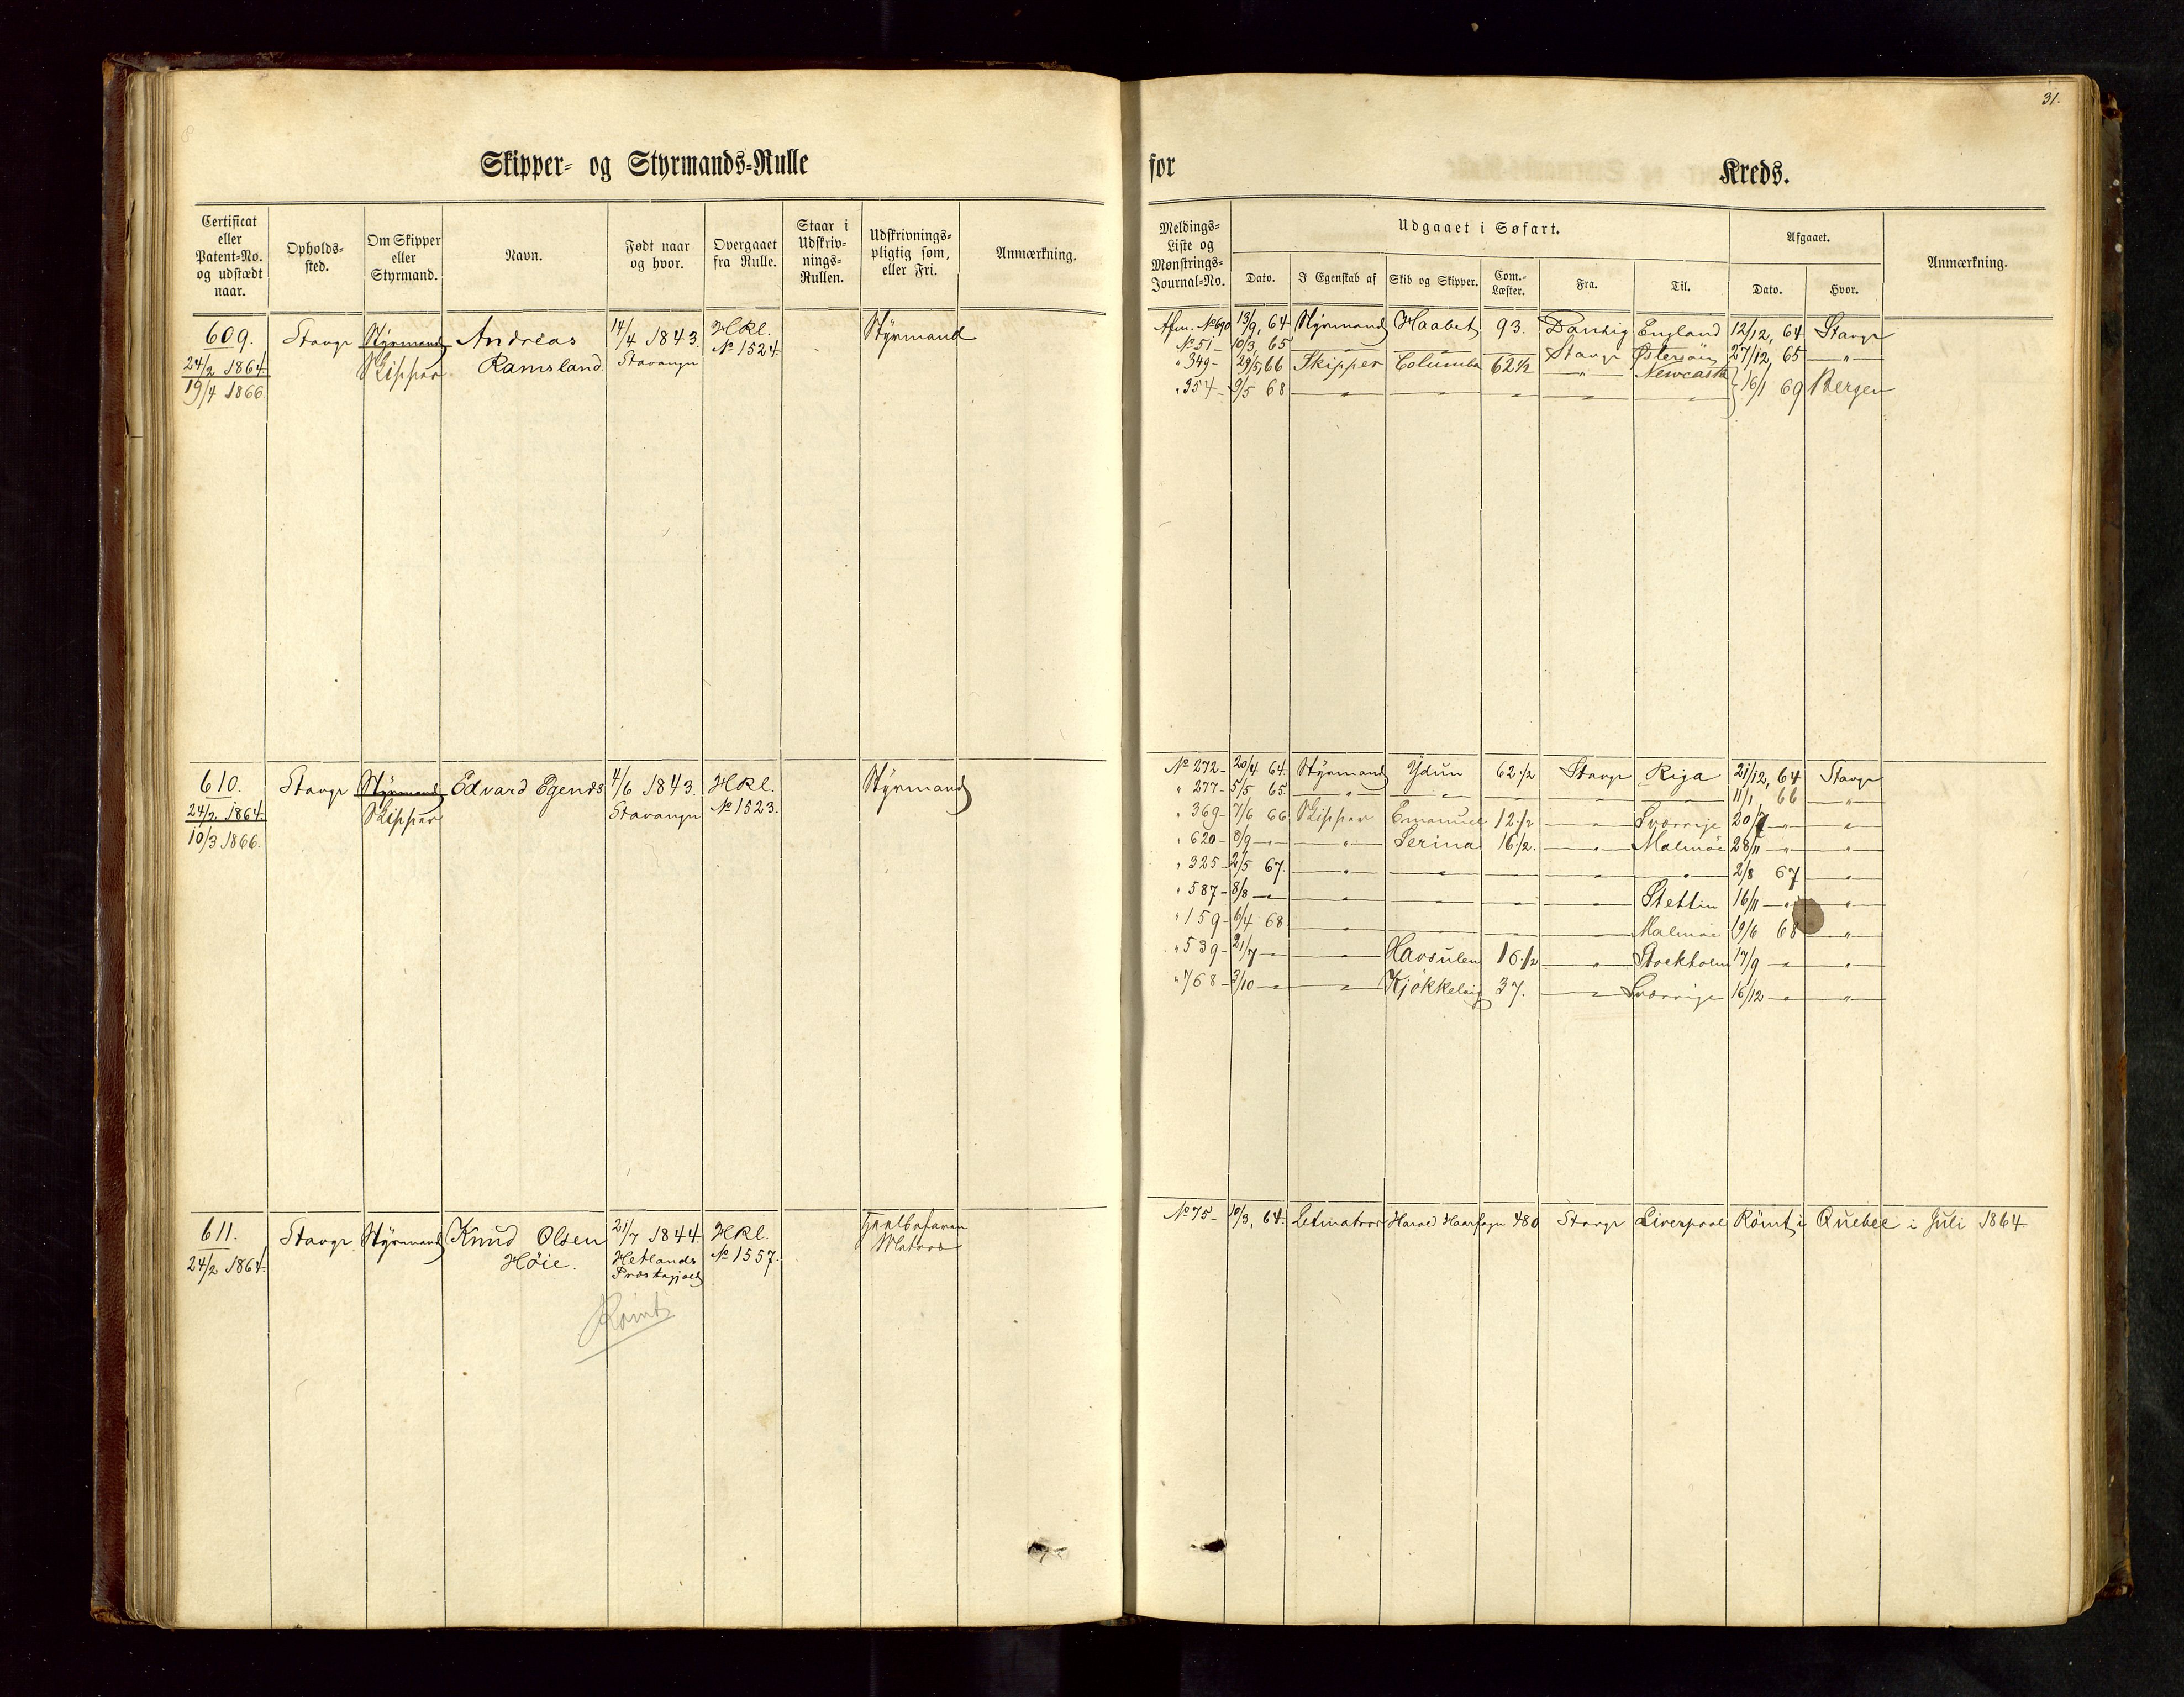 31.
Skipper- og Styrmands-Rulle
for Kreds.
Certificat eller Patent-No. og udstædt naar.
Opholds-sted.
Om Skipper eller Styrmand.
Navn.
Født naar og hvor.
Overgaaet fra Rulle.
Staar i Udskriv-nings-Rullen.
Udskrivnings-pligtig som, eller Fri.
Anmærkning.
Meldings-Liste og Mønstrings-Journal-No.
Udgaaet i Søfart.
Dato.
I Egenskab af
Skib og Skipper.
Com.-Læster.
Fra.
Til.
Afgaaet.
Dato.
Hvor.
Anmærkning.
609. Stavgr Styrmand Andreas 14/4 1843. HRl. Styrmand
24/2 1864. Skipper Ramsland. Stavanger No 1524.
19/4 1866.
Afm. No 690 13/9, 64 Styrmand Haabet 93. Danzig England 12/12, 64 Stavgr
No 51 - 10/3, 65 Stavgr Østersöen 27/12, 65 — " —
" 349 - 29/5, 66 Skipper Columba 62 1/2 — " — Newcastle
" 354 - 9/5 68 — " — — " — — " — — " — — " — 16/1 69 Bergen
610. Stavgr Styrmand Edvard Egends 4/6 1843. HRl. Styrmand
24/2 1864. Skipper Stavanger No 1523.
10/3 1866.
No 272 - 20/4 64. Styrmand Ydun 62 1/2 Stavgr Riga 21/12, 64 Stavgr
" 277 - 5/5 65. — " — — " — — " — — " — — " — 11/1, 66 — " —
" 369 - 7/6 66 Skipper Emanuel 12 1/2 — " — Sverrige 20/7 — " — — " —
" 620 - 8/9 — " — — " — Serina 16 1/2. — " — Malmöe 28/11 — " — — " —
" 325 - 2/5 67. — " — — " — — " — — " — — " — 2/8 67 — " —
" 587 - 8/8 — " — — " — — " — — " — — " — Stettin 16/11 — " — — " —
" 159 - 6/4 68. — " — — " — — " — — " — Malmöe 19/6 68 — " —
" 539 - 21/7 — " — — " — Havsulen 16 1/2 — " — Stockholm 17/9 — " — — " —
" 768 - 3/10 — " — — " — Kjökkelvig 37. — " — Sverrige 16/12 — " — — " —
611. Stavgr Styrmand Knud Olsen 21/7 1844. HRl.
24/2 1864. Höie. Hetlands No 1557. Matros
Præstegjæld
No 75 - 10/3, 64. Letmatros Harald Haarfagr 480 Stavgr Liverpool Römt i Quebec i Juli 1864.
Römt